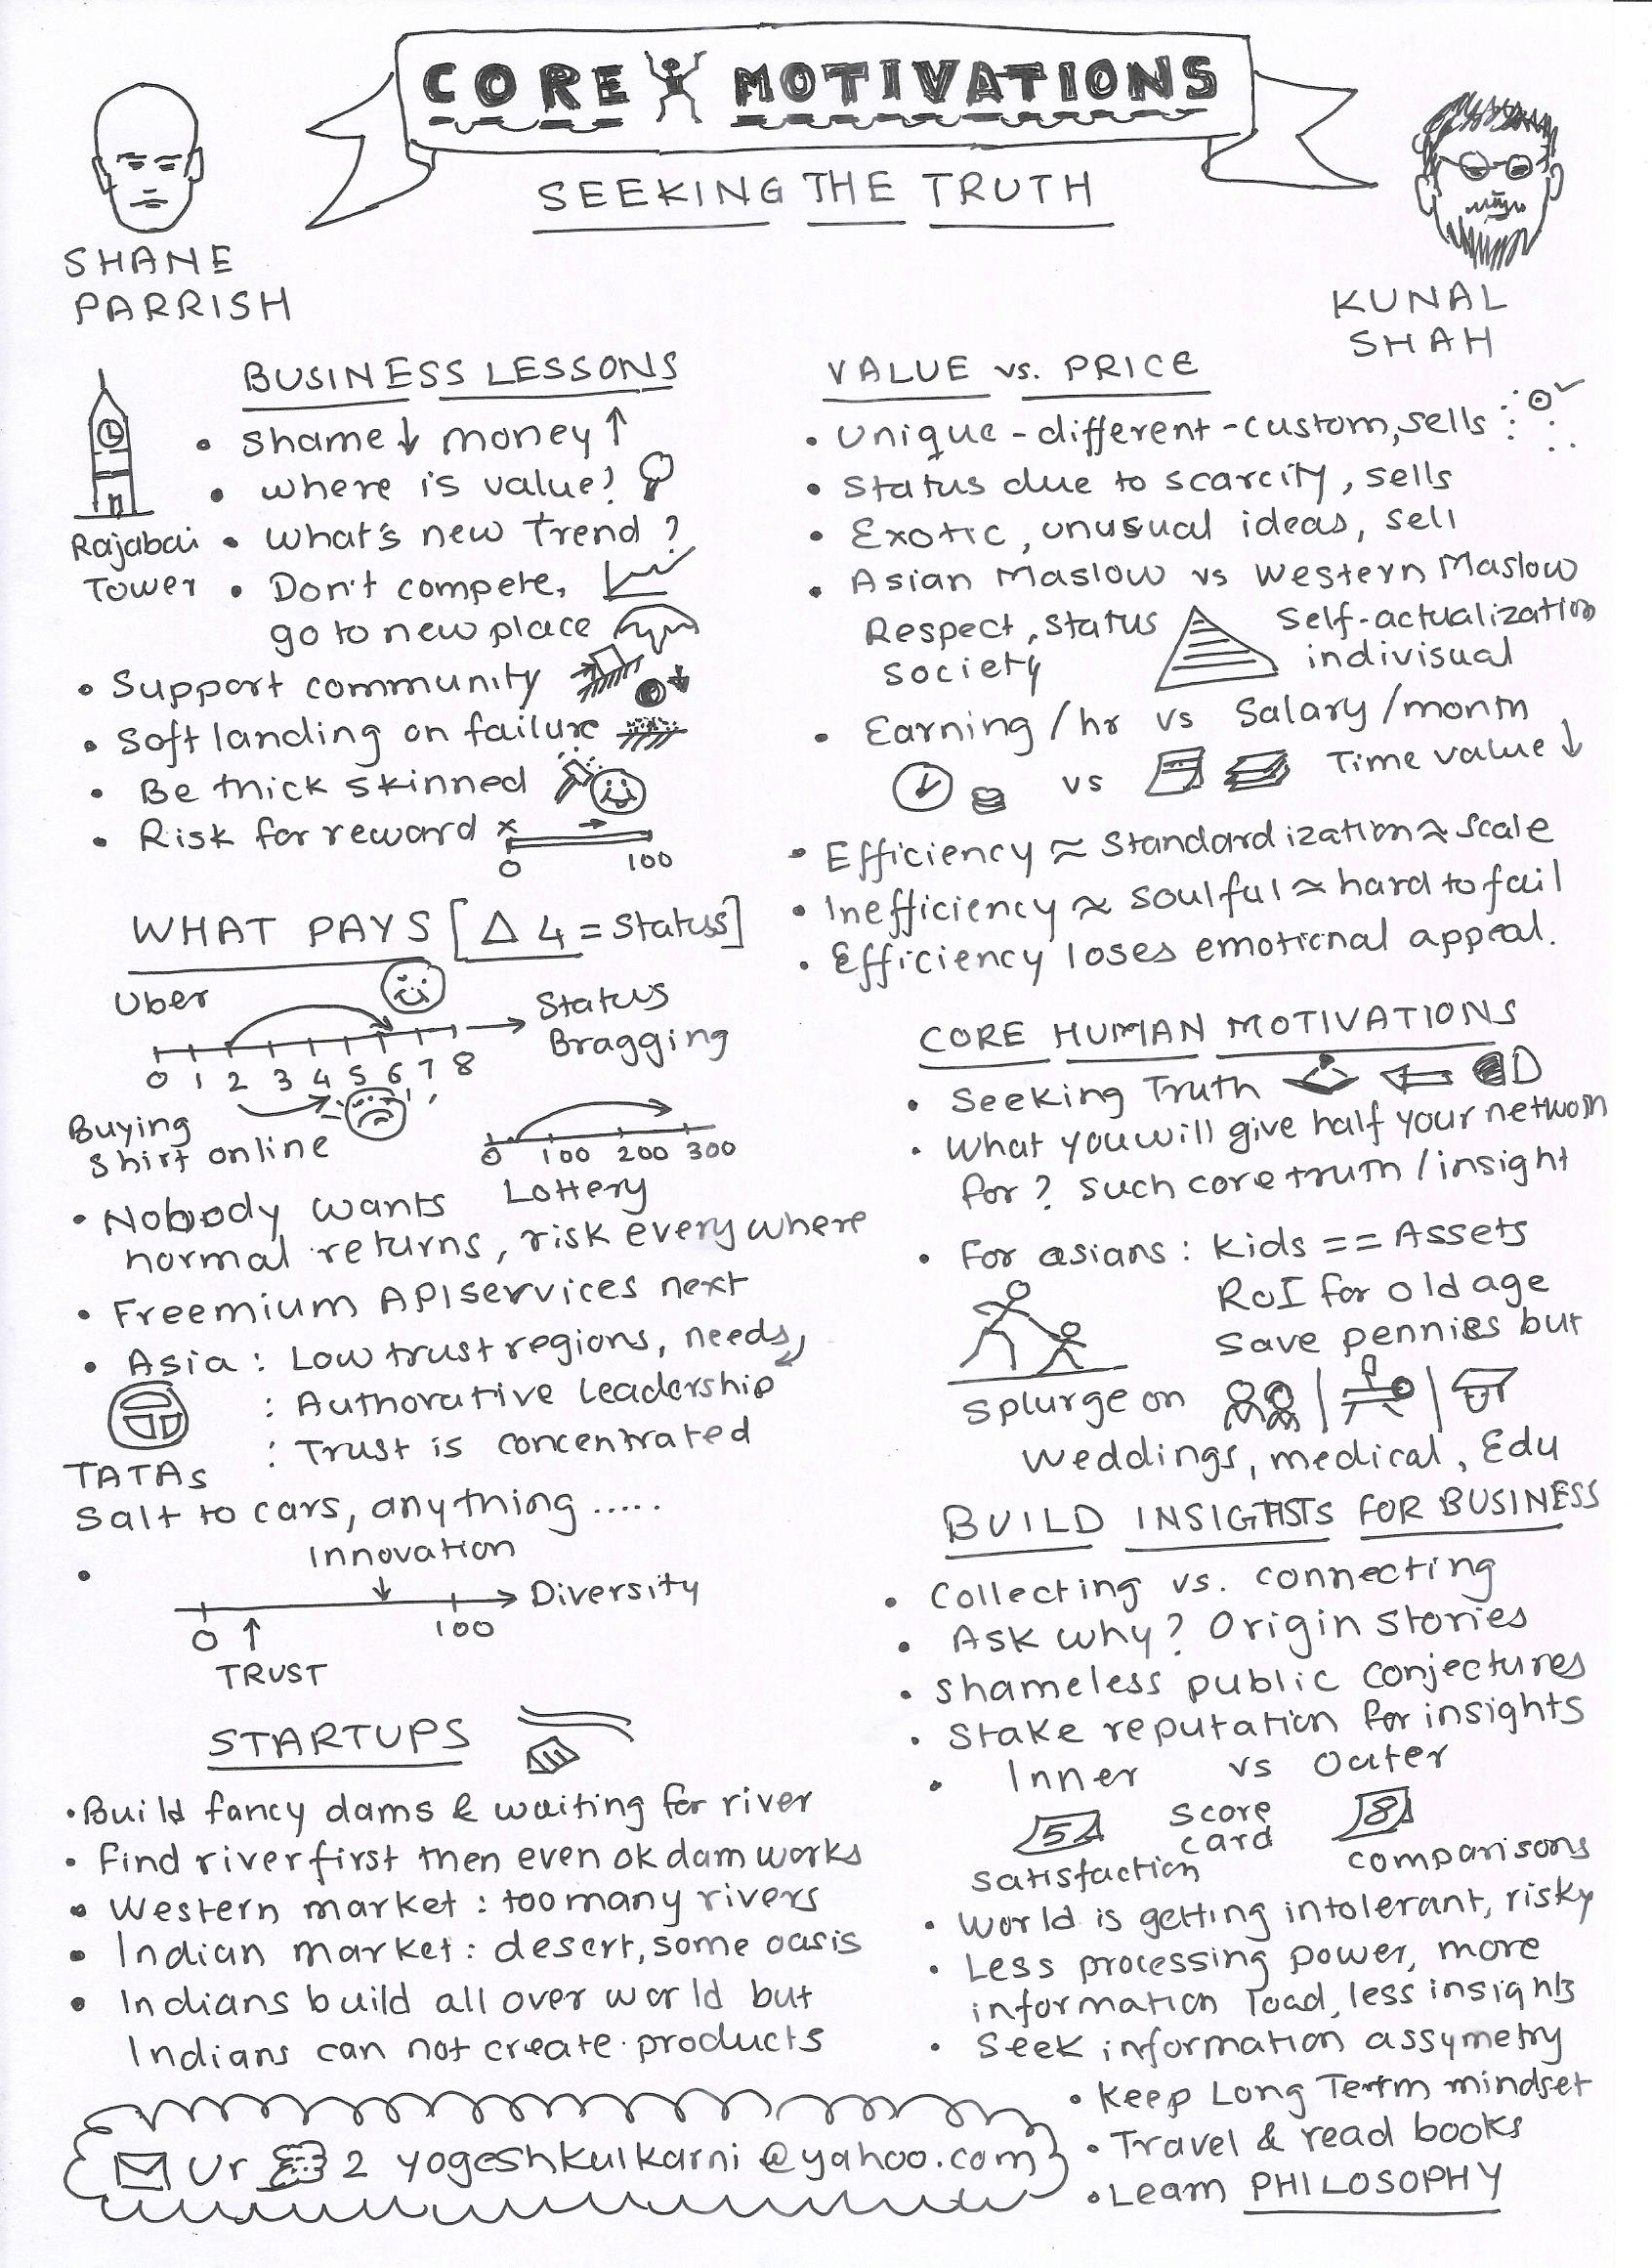 CORE MOTIVATIONS
SEEKING THE TRUTH
SHANE
PARRISH
KUNAL
SHAH
BUSINESS LESSONS
• Shame ↓ money ↑
• where is value?
Rajabai
Tower
• What's new Trend?
• Don't compete,
go to new place
• Support community
• Soft landing on failure
• Be thick skinned
• Risk for reward
x
0 100
WHAT PAYS [Δ 4 = Status]
Uber
Status
Bragging
0 1 2 3 4 5 6 7 8
Buying
Shirt online
0 100 200 300
Lottery
• Nobody wants
normal returns, risk everywhere
• Freemium API services next
• Asia : Low trust regions, needs,
: Authorative leadership
: Trust is concentrated
TATAs
Salt to cars, anything .....
• Innovation
Diversity
0 100
TRUST
STARTUPS
• Build fancy dams & waiting for river
• find river first then even ok dam works
• Western market : too many rivers
• Indian market : desert, some oasis
• Indians build all over world but
Indians can not create products
Ur 2 yogeshkulkarni@yahoo.com
VALUE vs. PRICE
• Unique - different - custom, sells
• Status due to scarcity, sells
• Exotic, unusual ideas, sell
• Asian Maslow vs Western Maslow
Respect, status
society
Self-actualization
indivisual
• Earning/hr vs Salary/month
vs Time value ↓
• Efficiency ≈ Standardization ≈ scale
• Inefficiency ≈ soulful ≈ hard to fail
• Efficiency loses emotional appeal.
CORE HUMAN MOTIVATIONS
• Seeking Truth
• What you will give half your
for? such core truth/insight
• For asians : Kids == Assets
RoI for old age
Save pennies but
Splurge on
Weddings, medical, Edu
BUILD INSIGHTS FOR BUSINESS
• Collecting vs. connecting
• Ask why? Origin stories
• Shameless public conjectures
• Stake reputation for insights
• Inner vs Outer
5 Score 8
card
satisfaction comparisons
• World is getting intolerant, risky
• Less processing power, more
information load, less insights
• Seek information assymetry
• Keep Long Term mindset
• Travel & read books
• Learn PHILOSOPHY